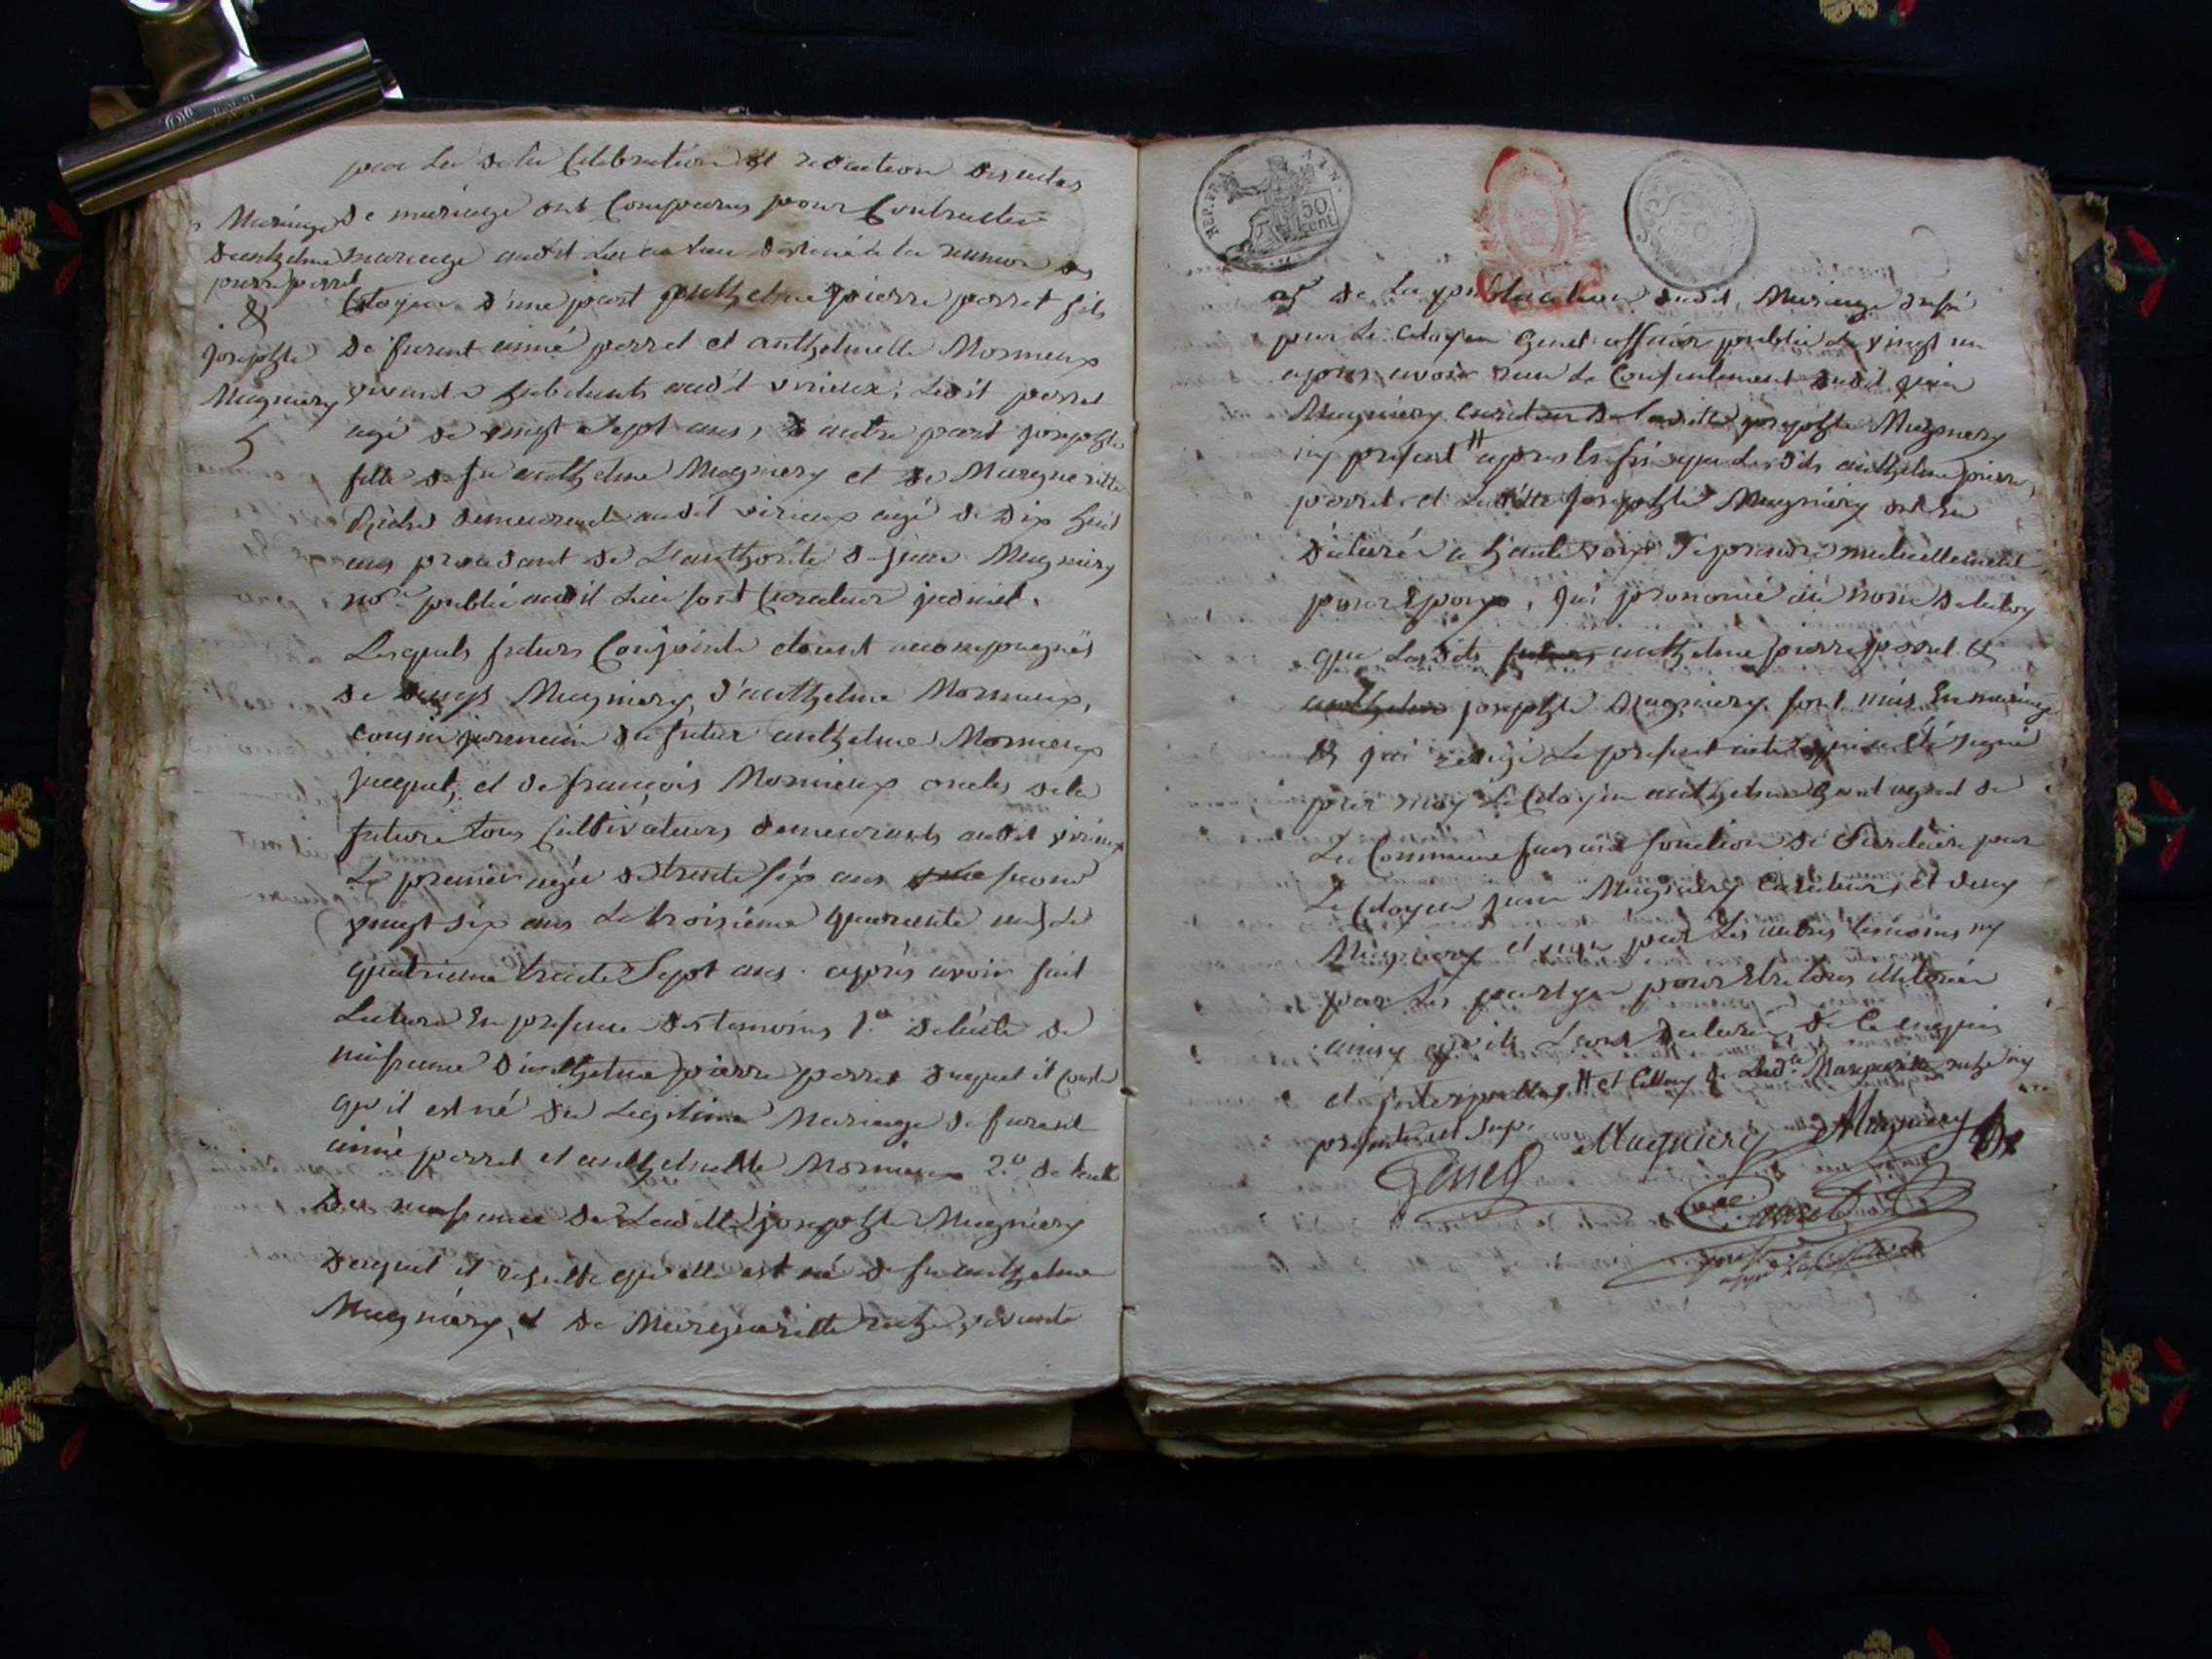 par Loi de la Celebration et redaction des actes
Mariage
d'anthelme
pierre perret
&
josephte
Mugniery
5
de mariage ont Comparus pour Contracter
mariage audit lieu au lieu destiné a la reunion des
Citoyens d'une part anthelme pierre perret fils
de furent aimé perret et anthelmette Mornieux
vivants habitants audit virieux, Ledit perret
agé de vingt Sept ans, d'autre part josephte
fille de fu anthelme Mugniery et de Margueritte
Riche demeurante audit virieux agé de dix huit
ans procedant de L'authorité de jean Mugniery
nore public audit Lieu son Curateur judiciel.
Lesquels futurs Conjoints etant accompagnés
de denys Mugniery, d'anthelme Mornieux,
cousin du futur anthelme Mornieux
jacquet, et de françois Mornieux oncles de la
future tous Cultivateurs demeurants audit virieux
Le premier agé de trente six ans second
vingt six ans Le troisième quarante ans, Le
quatrieme trente Sept ans. après avoir fait
Lecture En presence des temoins 1.o de l'acte de
naissance d'anthelme pierre perret duquel il Conste
qu'il est né du Legitime Mariage de furent
aimé perret et anthelmette Mornieux 2.o de l'acte
de naissance de Laditte josephte Mugniery
duquel il resulte qu'elle est né de fu anthelme
Mugniery, et de Margueritte riche, vivante
REP. FRA. 50 cent. AIN.
de La publication dudit Mariage
par Le Citoyen Genet officier public Le vingt un
apres avoir reçu Le Consentement dudit jean
Mugniery curateur de laditte josephte Mugniery
icy present # apres aussi que Lesdits anthelme pierre
perret et Laditte josephte Mugniery ont eu
déclaré a haute voix Se prendre mutuellement
pour Epoux, j'ai prononcé au nom de la loy
que Lesdits futurs anthelme pierre perret et
anthelme josephte Mugniery sont unis En mariage
Et j'ai redigé Le present acte qui a été signé
par moy Le Citoyen anthelme Genet agent de
La Commune faisant fonction de par
Le Citoyen jean Mugniery Curateur, et denys
Mugniery et non par Les autres temoins ny
par Les partyes pour Etre tous illiterés
ainsy qu'ils L'ont declaré, de Ce enquis
et interpellés, # et Celluy de Lad.e Marguerite riche icy
presente
Genet Mugniery Mugniery